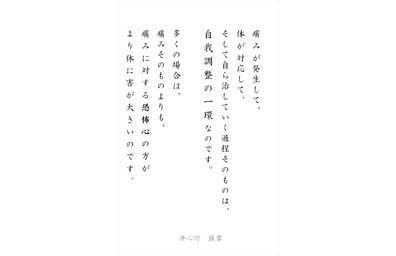 痛みが発生して、
体が対応して、
そして自ら治していく過程そのものは、
自我調整の一環なのです。
多くの場合は、
痛みそのものよりも、
痛みに対する恐怖心の方が
より体に害が大きいのです。
浄心坊　蘇雲